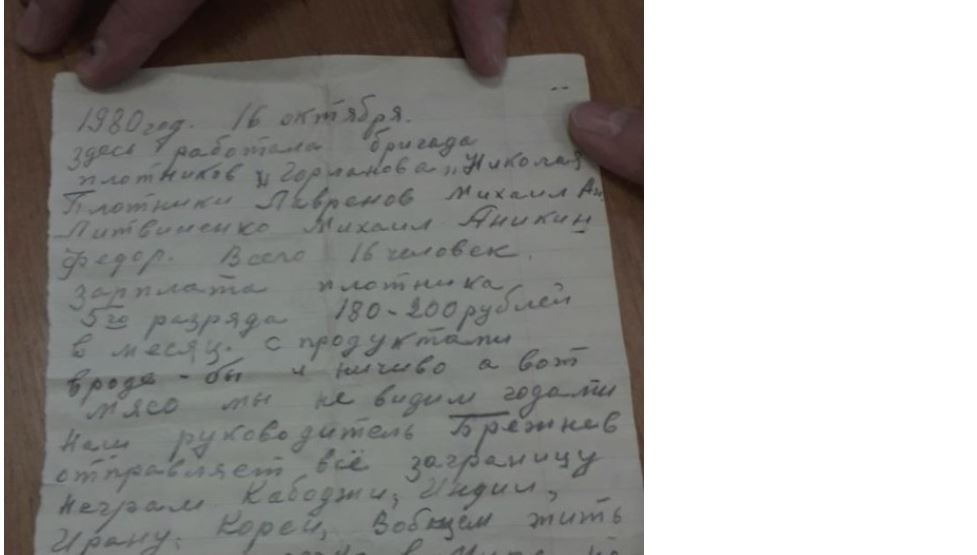 1980 год. 16 октября.
Здесь работала бригада
плотников „Горланова„ Николая
Плотники Лавренов Михаил Ан
Литвиненко Михаил Аникин
Федор. Всего 16 человек.
Зарплата плотника
5го разряда 180-200 рублей
в месяц. с продуктами
вроде-бы и ничиво а вот
мясо мы не видим годами
Наш руководитель Брежнев
отправляет всё заграницу
Неграм Кабоджи, Индии,
Ирану, Кореи, Вобщем жить